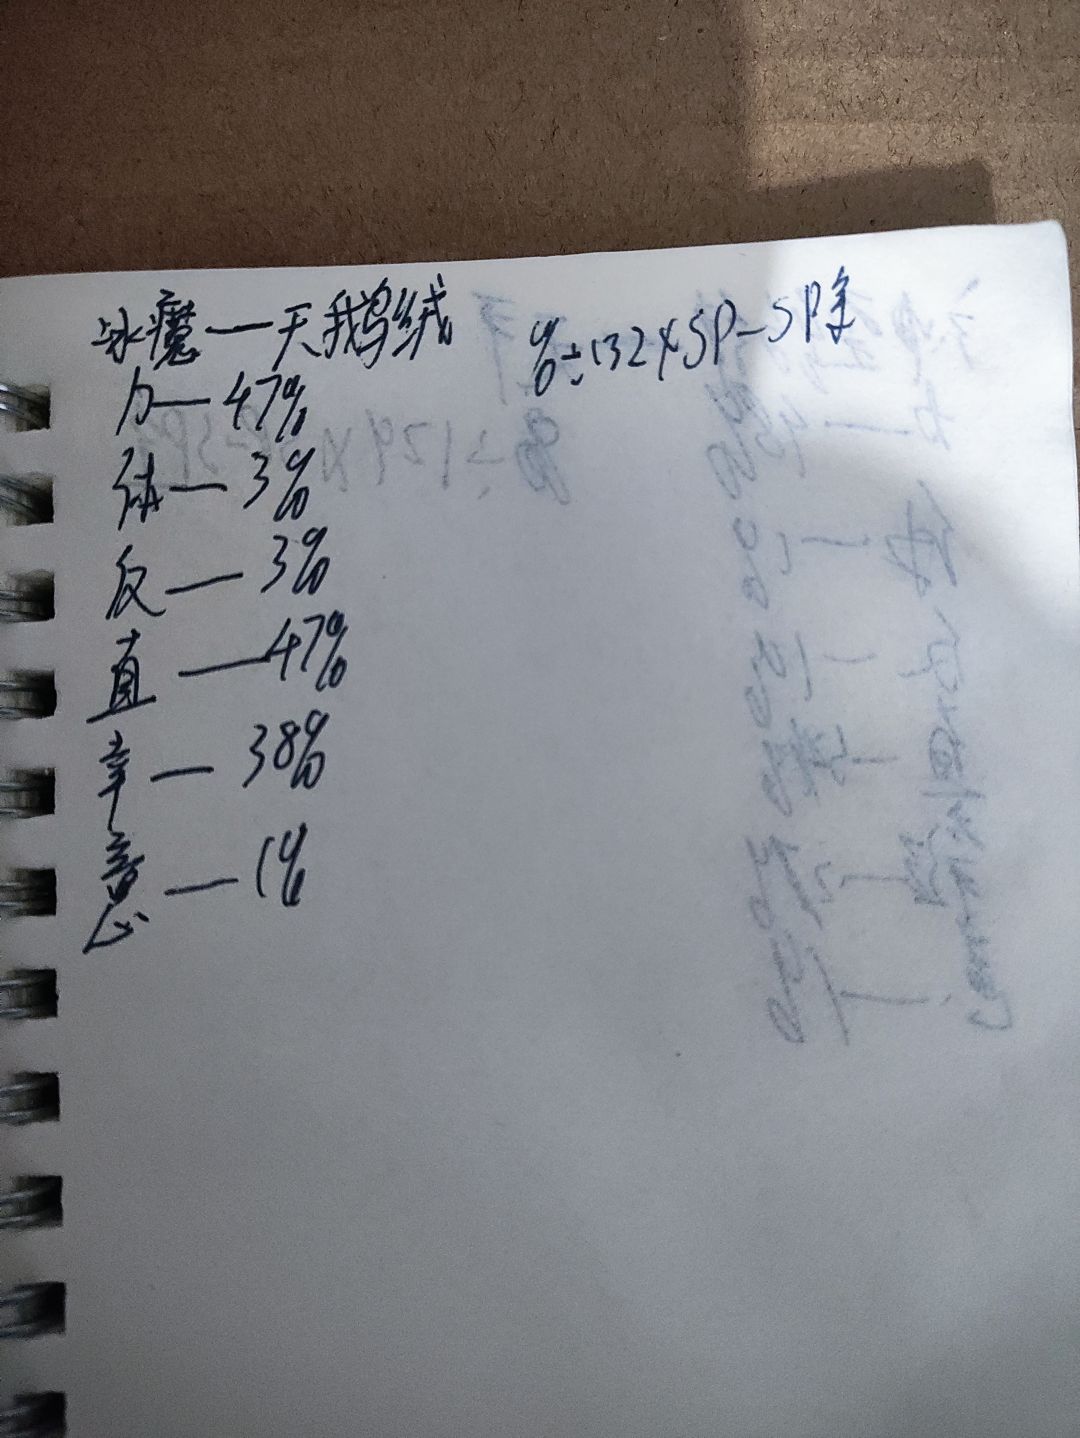 冰魔—天鹅绒
%÷132×SP-SP条
力—47%
体—3%
反—3%
直—47%
幸—38%
意—1%